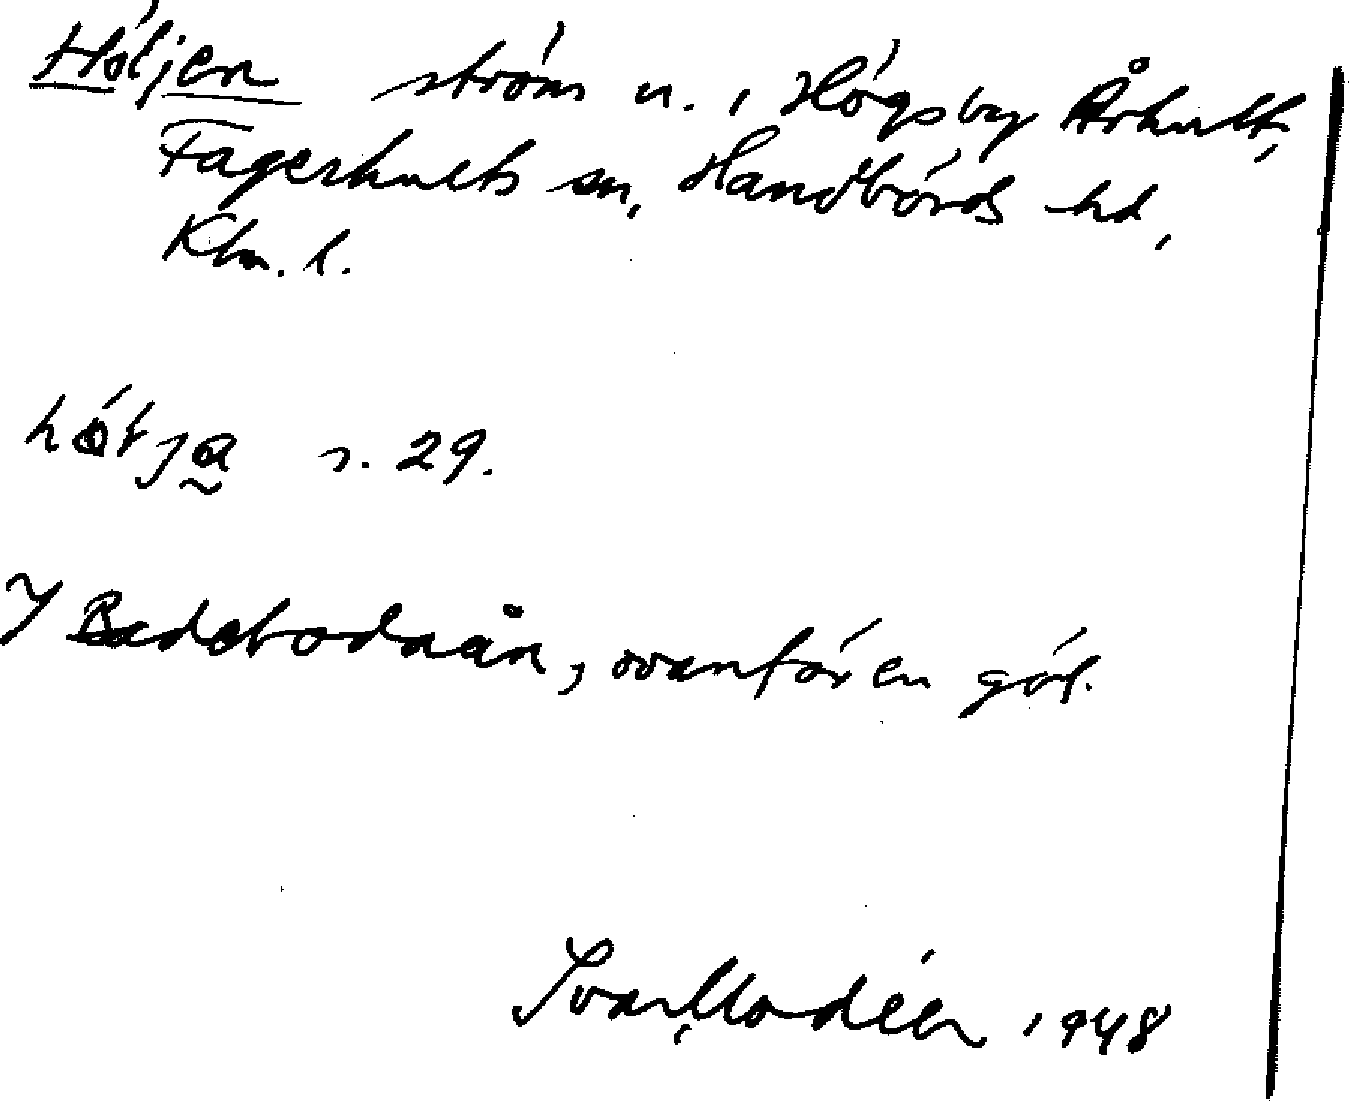 Höljen ström n. i Högsby Århult,
Fagerhults sn, Handbörds hd,
Klm. l.
s. 29.
I Badebodaån, ovanför en göl.
Ivar Modéer 1948